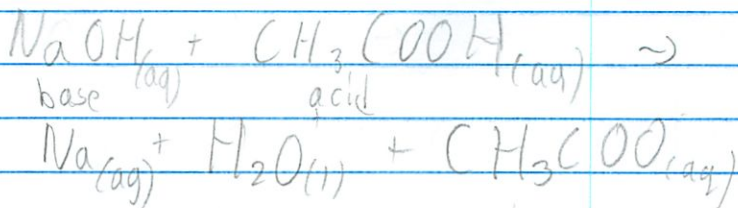 NaOH(aq) + CH3COOH(aq) →
base acid
Na(aq)+ H2O(l) + CH3COO(aq)